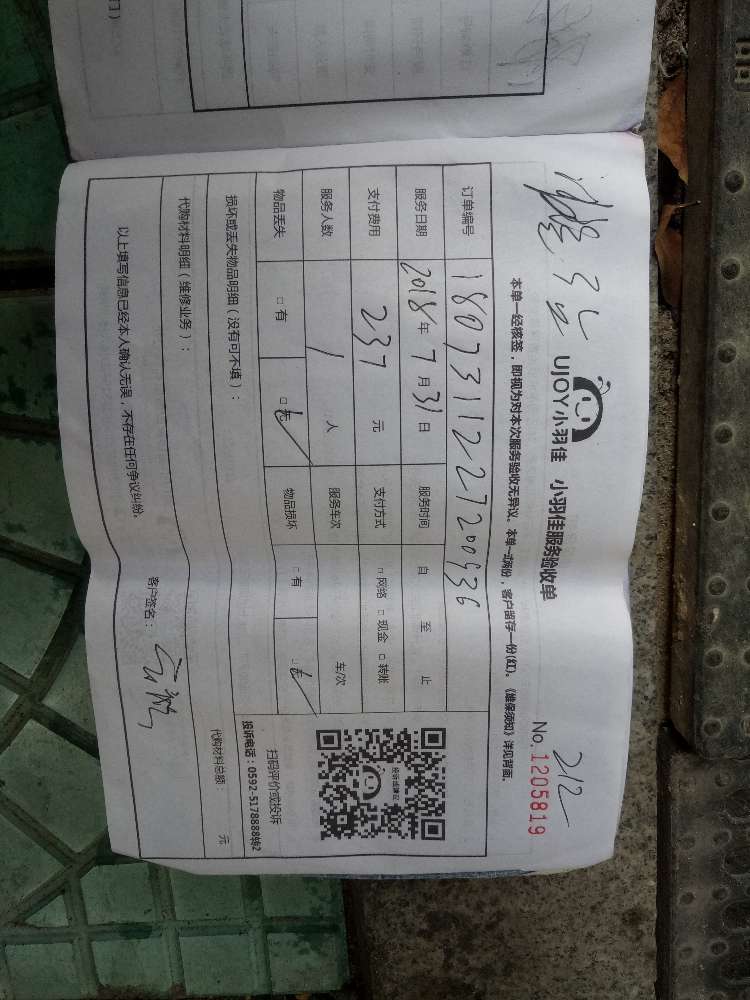 212
UJOY小羽佳 小羽佳服务验收单 No. 1205819
本单一经核签，即视为对本次服务验收无异议。本单一式两份，客户留存一份(红)。《维保须知》详见背面。
订单编号 1807311227200936
服务日期 2018年 7月 31日 服务时间 自 至 止
支付费用 237 元 支付方式 □网络 □现金 □转账
服务人数 1 人 服务车次 车/次
物品丢失 □有 □无 物品损坏 □有 □无
扫码评价或投诉
投诉电话：0592-5178888转2
损坏或丢失物品明细（没有可不填）：
代购材料明细（维修业务）： 代购材料总额 元
以上填写信息已经本人确认无误，不存在任何争议纠纷。
客户签名：